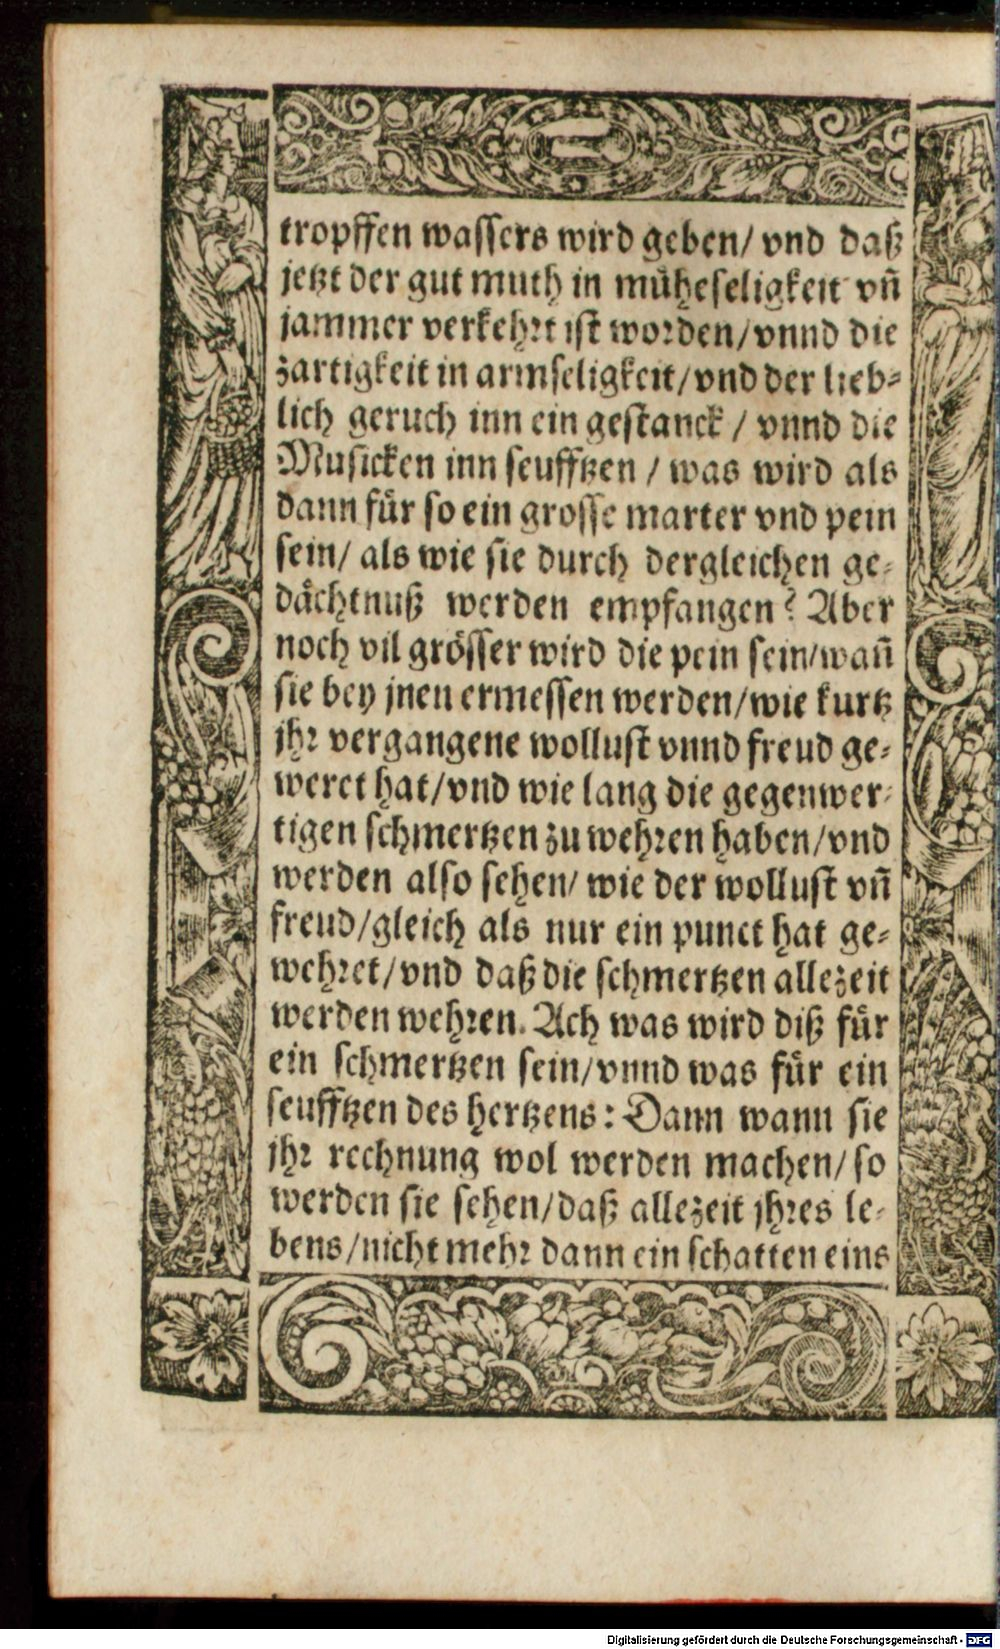 tropffen wassers wird geben/ vnd daß
jetzt der gut muth in müheseligkeit vñ
jammer verkehrt ist worden/vnnd die
zartigkeit in armseligkeit/vnd der lieb-
lich geruch inn ein gestanck / vnnd die
Musicken inn seufftzen / was wird als
dann für so ein grosse marter vnd pein
sein/ als wie sie durch dergleichen ge-
dächtnuß werden empfangen? Aber
noch vil grösser wird die pein sein/wañ
sie bey jnen ermessen werden/wie kurtz
jhr vergangene wollust vnnd freud ge-
weret hat/vnd wie lang die gegenwer-
tigen schmertzen zu wehren haben/vnd
werden also sehen/ wie der wollust vñ
freud/gleich als nur ein punct hat ge-
wehret/vnd daß die schmertzen allezeit
werden wehren. Ach was wird diß für
ein schmertzen sein/vnnd was für ein
seufftzen des hertzens: Dann wann sie
jhr rechnung wol werden machen/ so
werden sie sehen/daß allezeit jhres le-
bens/nicht mehr dann ein schatten eins
Digitalisierung gefördert durch die Deutsche Forschungsgemeinschaft - DFG